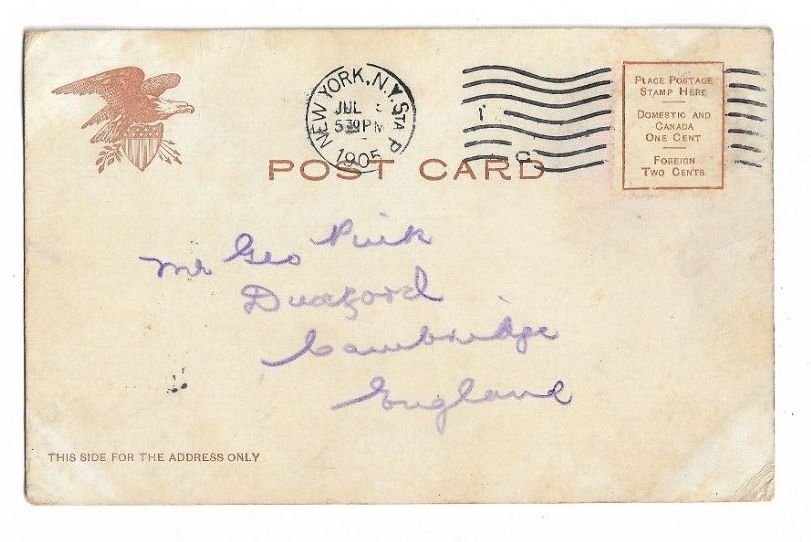 NEW YORK, N.Y. STA P
JUL
5 30 PM
1905
PLACE POSTAGE
STAMP HERE
DOMESTIC AND
CANADA
ONE CENT
FOREIGN
TWO CENTS
POST CARD
Mr Geo Pink
Duxford
Cambridge
England
THIS SIDE FOR THE ADDRESS ONLY